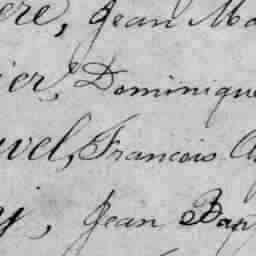 ere, Jean Ma
ier, Dominique
vel, Francois A
y, Jean Bap